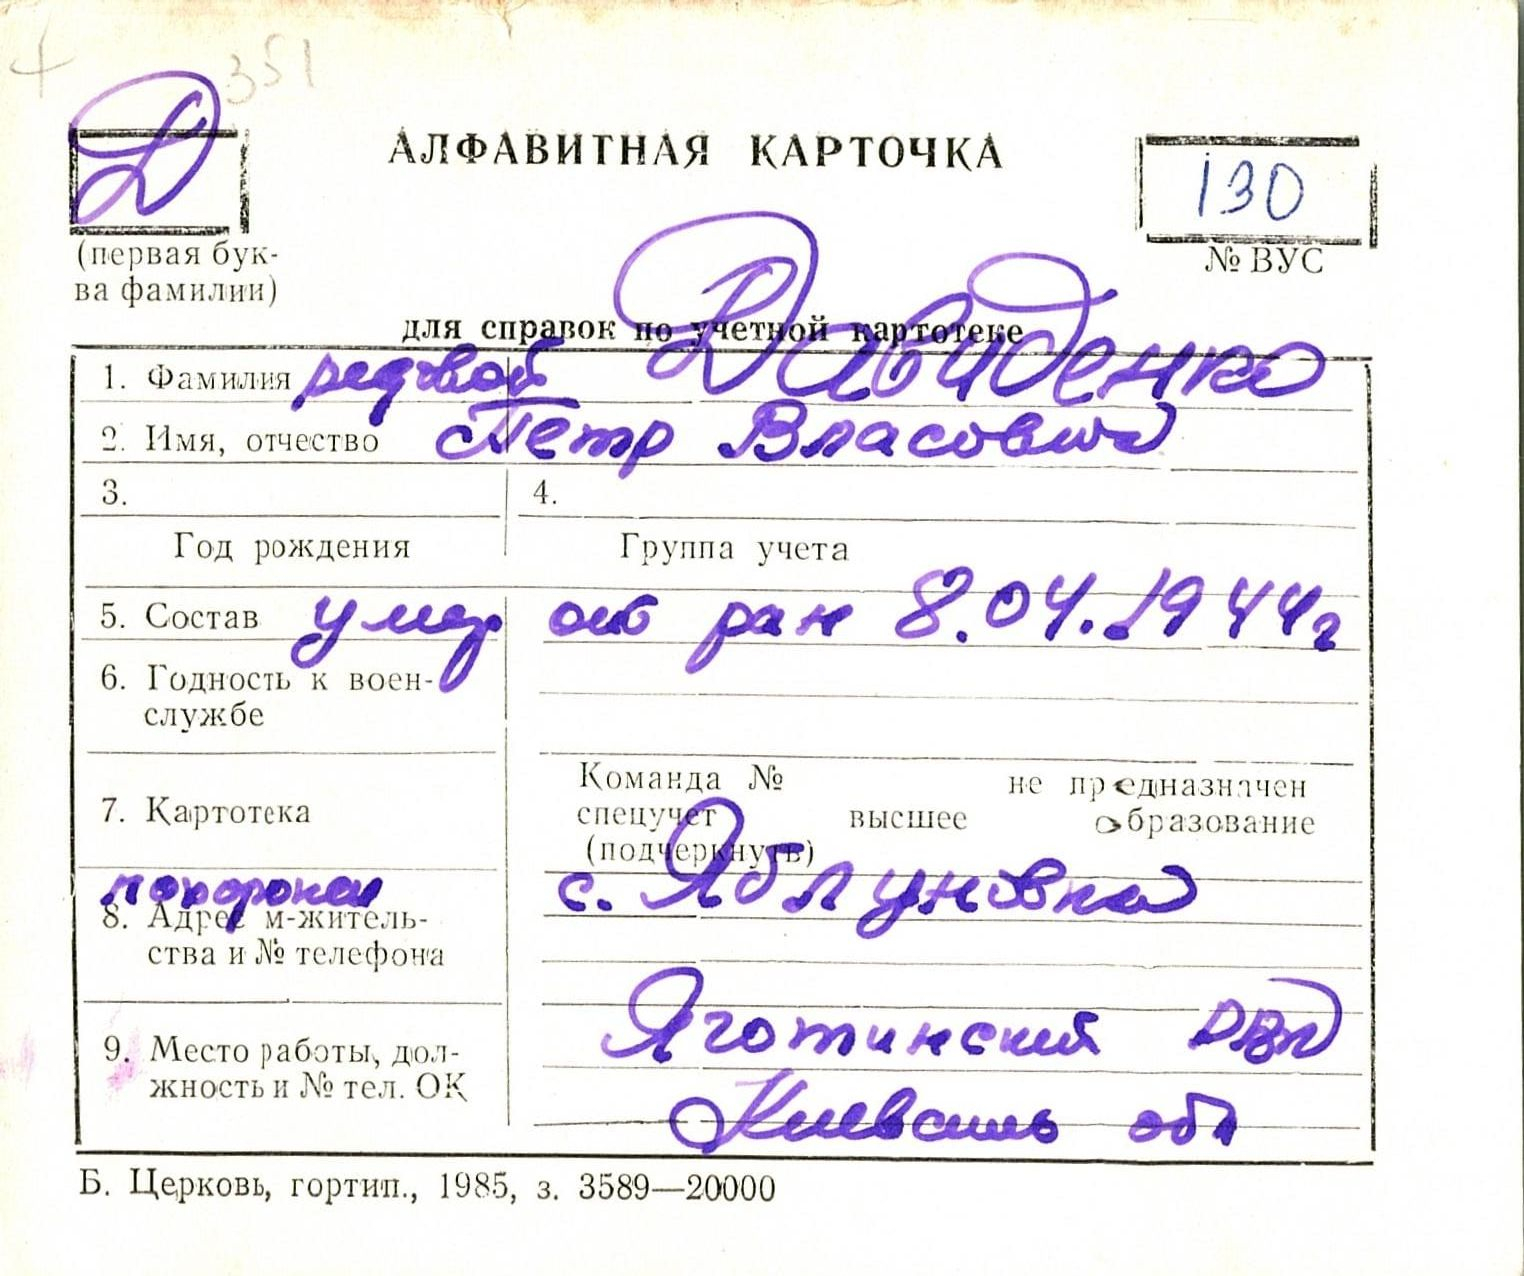 351
Д
АЛФАВИТНАЯ КАРТОЧКА
130
(первая бук-
ва фамилии)
№ ВУС
для справок по учетной картотеке
1. Фамилия рядовой Давиденко
2. Имя, отчество Петр Власович
3. 4.
Год рождения Группа учета
5. Состав умер от ран 8.04.1944г
6. Годность к воен-
службе
Команда № не предназначен
7. Картотека спецучет высшее образование
(подчеркнуть)
похоронен с. Яблуновка
8. Адрес м-житель-
ства и № телефона
Яготинский
9. Место работы, дол-
жность и № тел. ОК
Киевской обл
Б. Церковь, гортип., 1985, з. 3589—20000